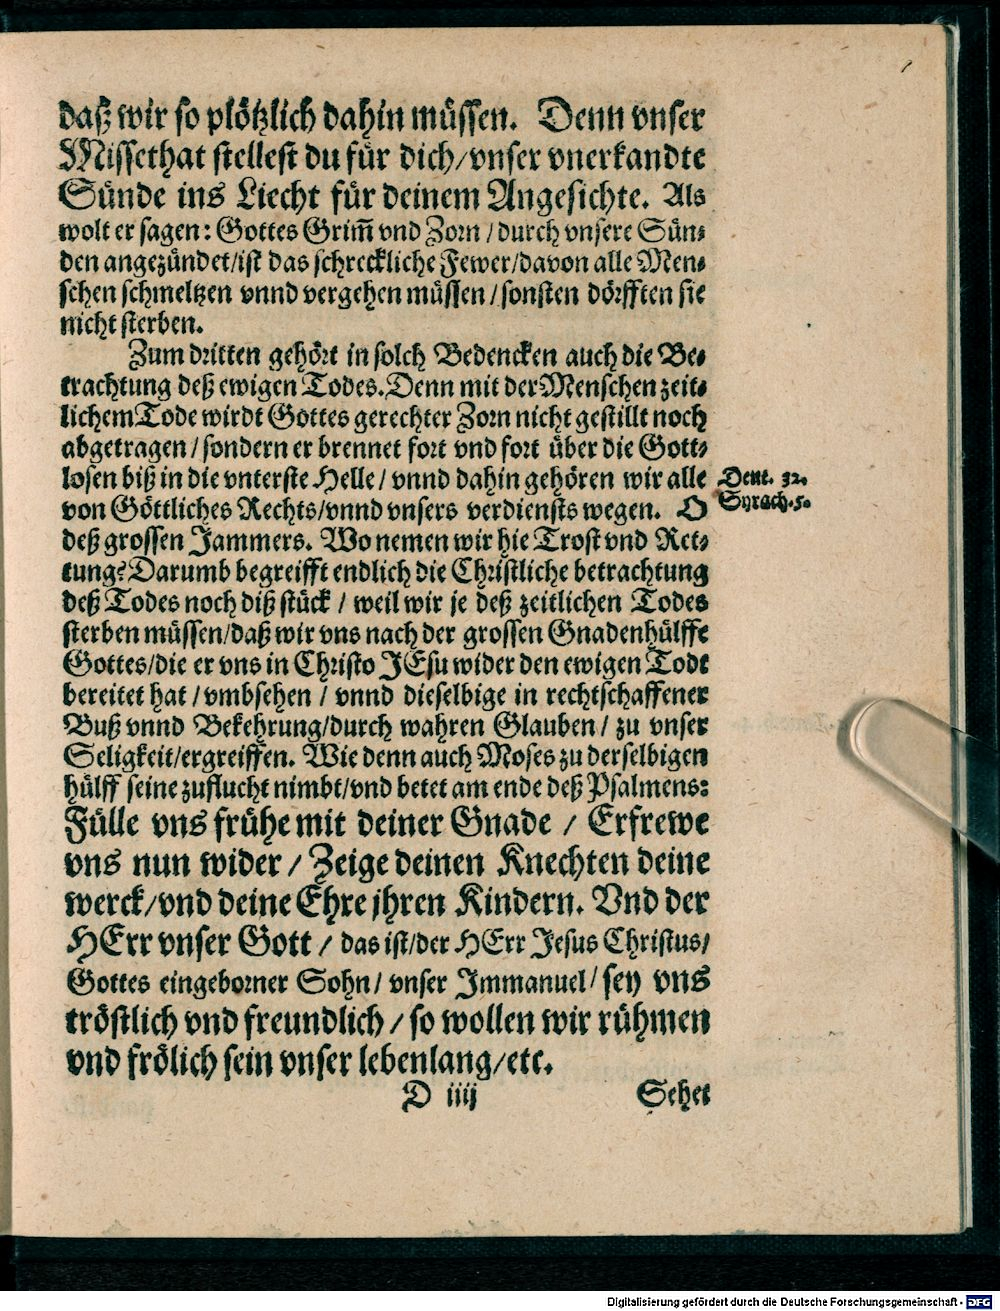 daß wir so plötzlich dahin müssen. Denn vnser
Missethat stellest du für dich/vnser vnerkandte
Sünde ins Liecht für deinem Angesichte. Als
wolt er sagen: Gottes Grim̃ vnd Zorn / durch vnsere Sün⸗
den angezündet/ist das schreckliche Fewer/davon alle Men⸗
schen schmeltzen vnnd vergehen müssen / sonsten dörfften sie
nicht sterben.
Zum dritten gehört in solch Bedencken auch die Be⸗
trachtung deß ewigen Todes. Denn mit der Menschen zeit⸗
lichem Tode wirdt Gottes gerechter Zorn nicht gestillt noch
abgetragen / sondern er brennet fort vnd fort über die Gott⸗
losen biß in die vnterste Helle / vnnd dahin gehören wir alle
von Göttliches Rechts/vnnd vnsers verdiensts wegen. O
Deut. 32.
Syrach. 5.
deß grossen Jammers. Wo nemen wir hie Trost vnd Ret⸗
tung? Darumb begreifft endlich die Christliche betrachtung
deß Todes noch diß stück / weil wir je deß zeitlichen Todes
sterben müssen/daß wir vns nach der grossen Gnadenhülffe
Gottes/die er vns in Christo JEsu wider den ewigen Todt
bereitet hat / vmbsehen / vnnd dieselbige in rechtschaffener
Buß vnnd Bekehrung/durch wahren Glauben / zu vnser
Seligkeit/ergreiffen. Wie denn auch Moses zu derselbigen
hülff seine zuflucht nimbt/vnd betet am ende deß Psalmens:
Fülle vns frühe mit deiner Gnade / Erfrewe
vns nun wider / Zeige deinen Knechten deine
werck/vnd deine Ehre jhren Kindern. Vnd der
HErr vnser Gott / das ist/der HErr Jesus Christus/
Gottes eingeborner Sohn / vnser Immanuel / sey vns
tröstlich vnd freundlich / so wollen wir rühmen
vnd frölich sein vnser lebenlang/etc.
D iiij
Sehet
Digitalisierung gefördert durch die Deutsche Forschungsgemeinschaft - DFG